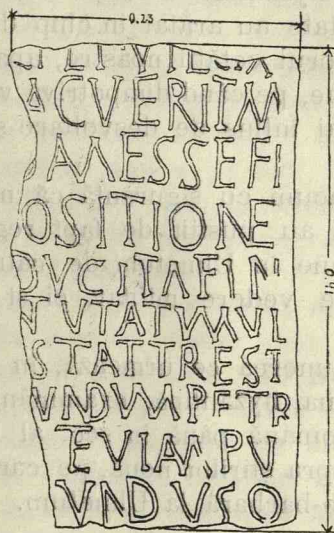 0.23
ACVERITM
AMESSEFI
OSITIONE
DVCITAFINI
TVTATVMVL
STATTRESI
VNDVMPFTR
EVIAMPV
VNDVSO
0.41